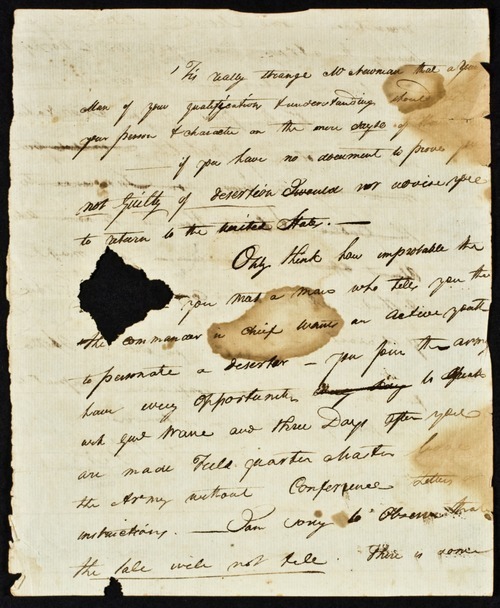 'Tis really strange Mr Newman that a You
Man of your qualifications & understanding should
your person & character on the mere of the
if you have no document to prove
not Guilty of desertion I would not advise you
to return to the United States. —
Only think how improbable the
you met a man who tells you the
the commander in chief wants an active youth
to personate a deserter — you join the army
have every opportunity to speak
with Genl Wayne and three Days after you
are made Field quarter Master
the Army without Conference
instructions. — I am sorry to observe that
the tale will not tell. There is some